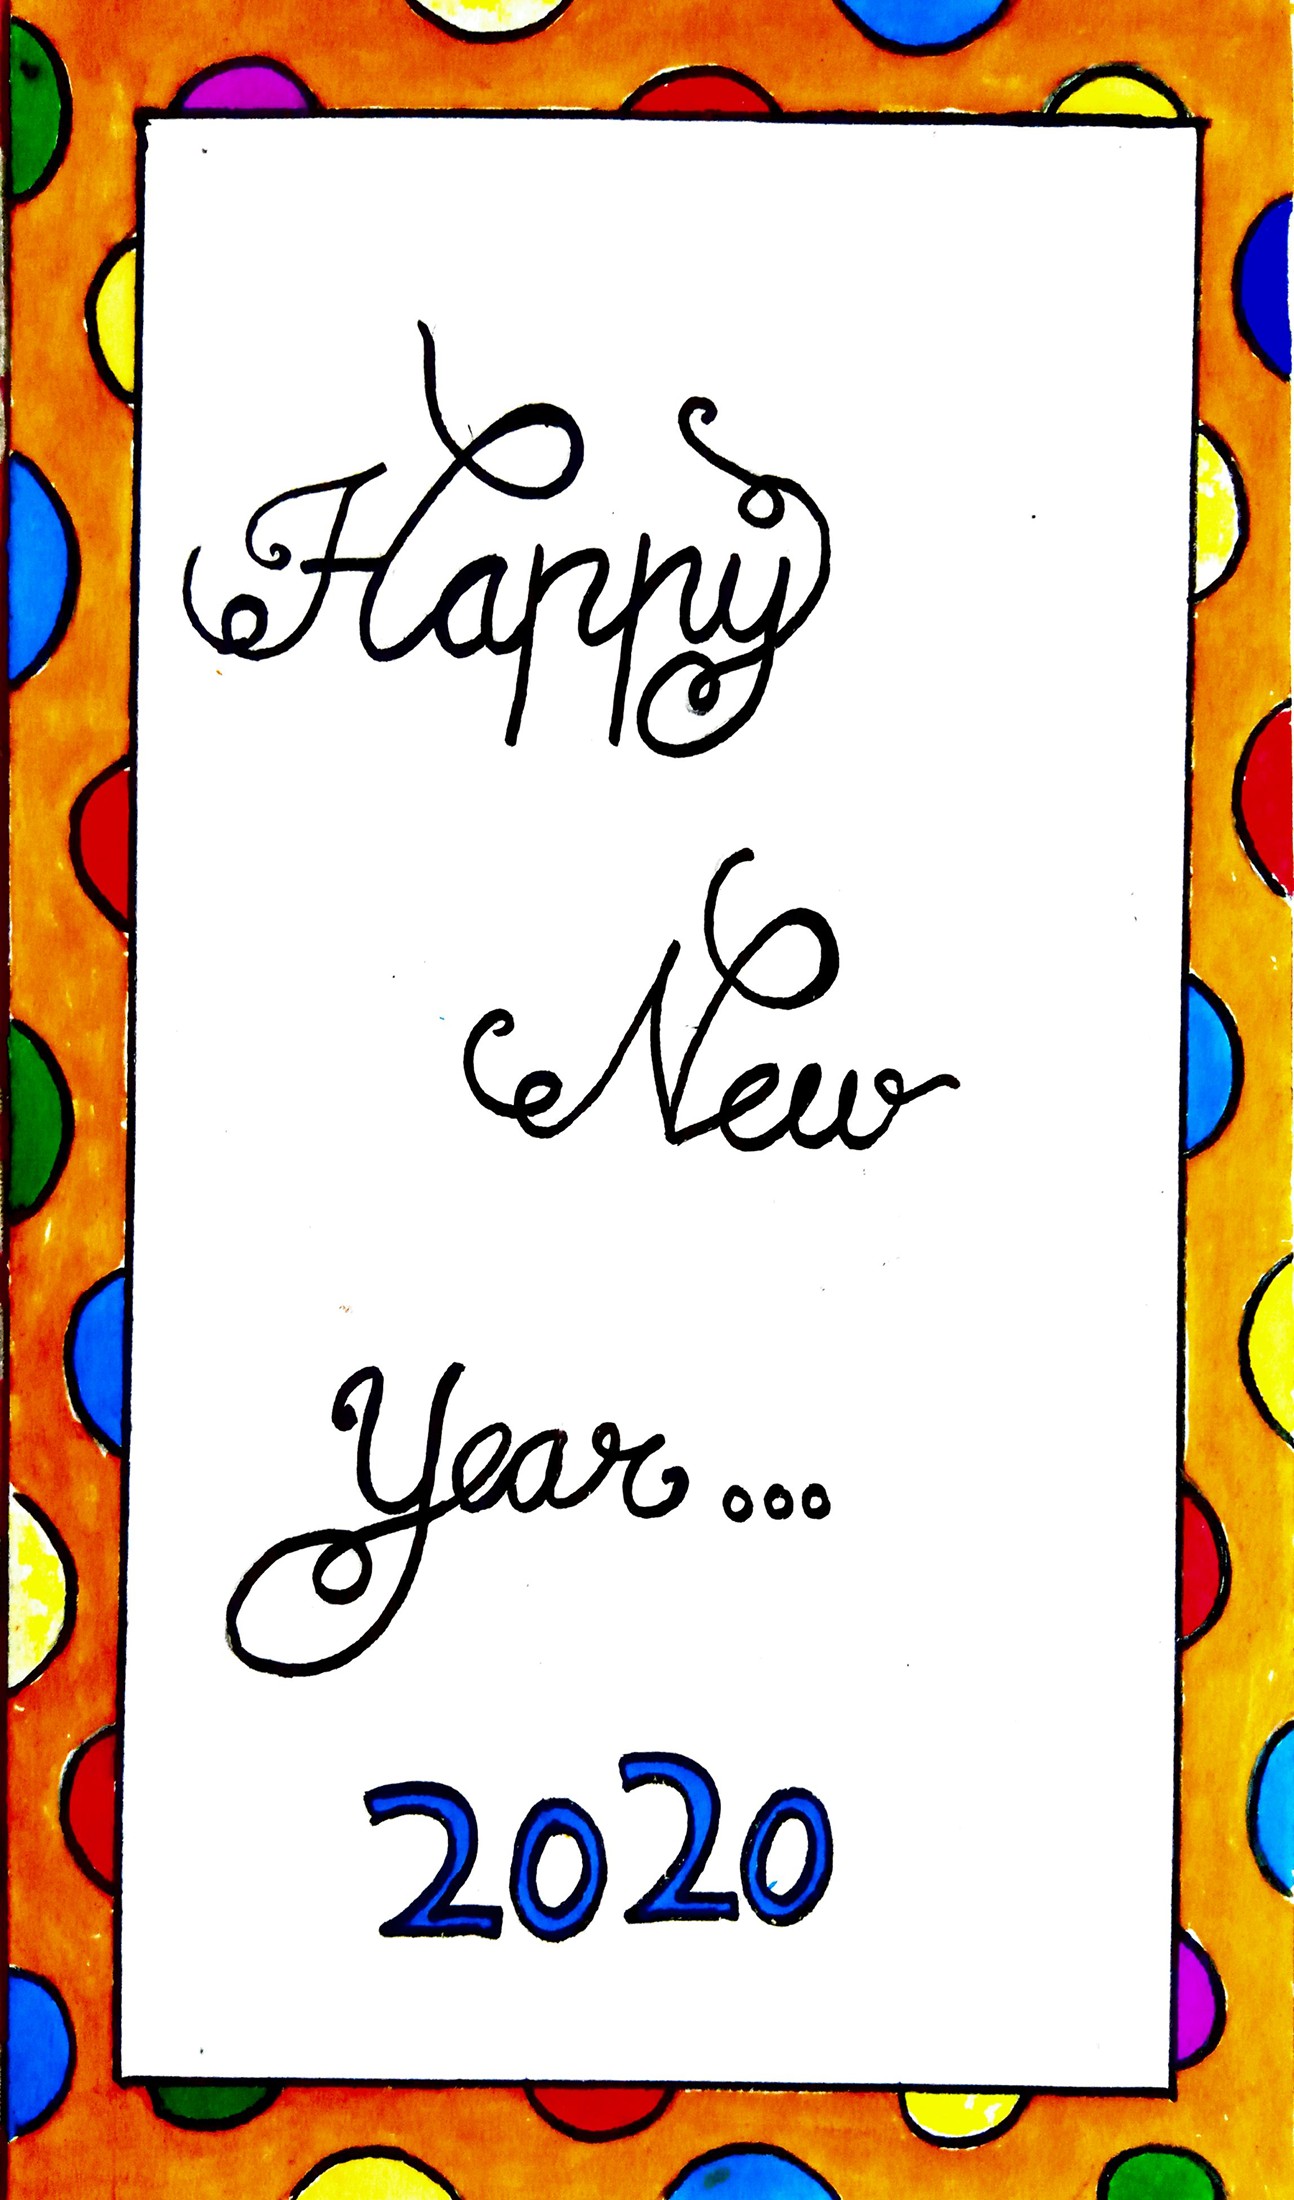 Happy
New
Year...
2020